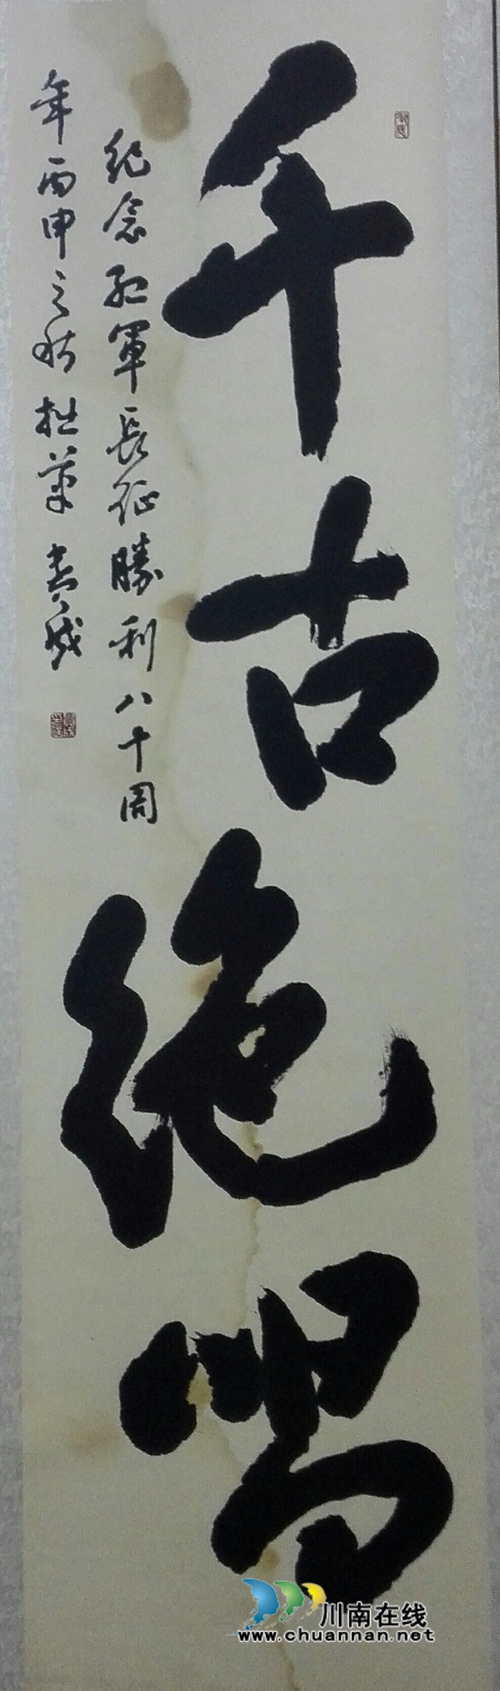 千古绝唱
纪念红军長征勝利八十周
年丙申之秋杜華書成
川南在线
www.chuannan.net